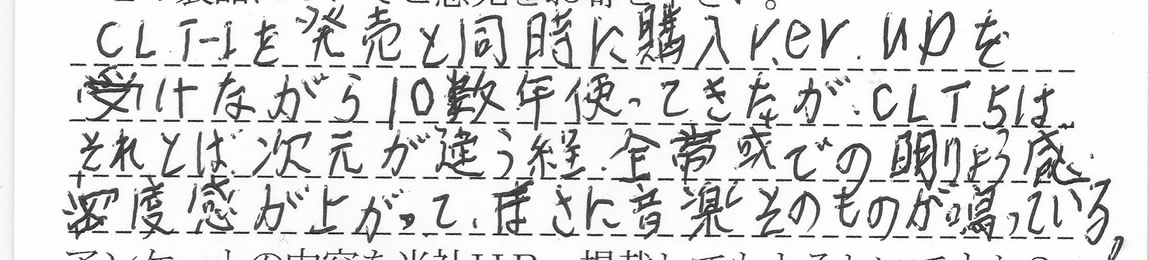 CLT-1を発売と同時に購入ver.upを
受けながら10数年使ってきたが、CLT5は、
それとは次元が違う 全帯域での明りょう感、
密度感が上がって、まさに音楽そのものが鳴っている。